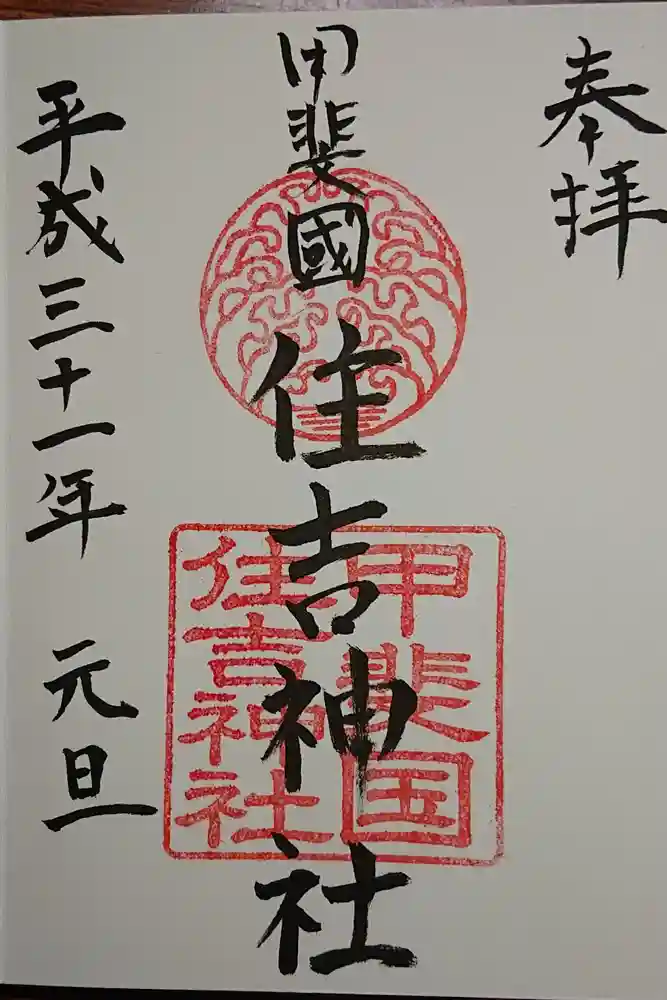 奉拝
甲斐國
住吉神社
甲斐国
住吉神社
平成三十一年 元旦